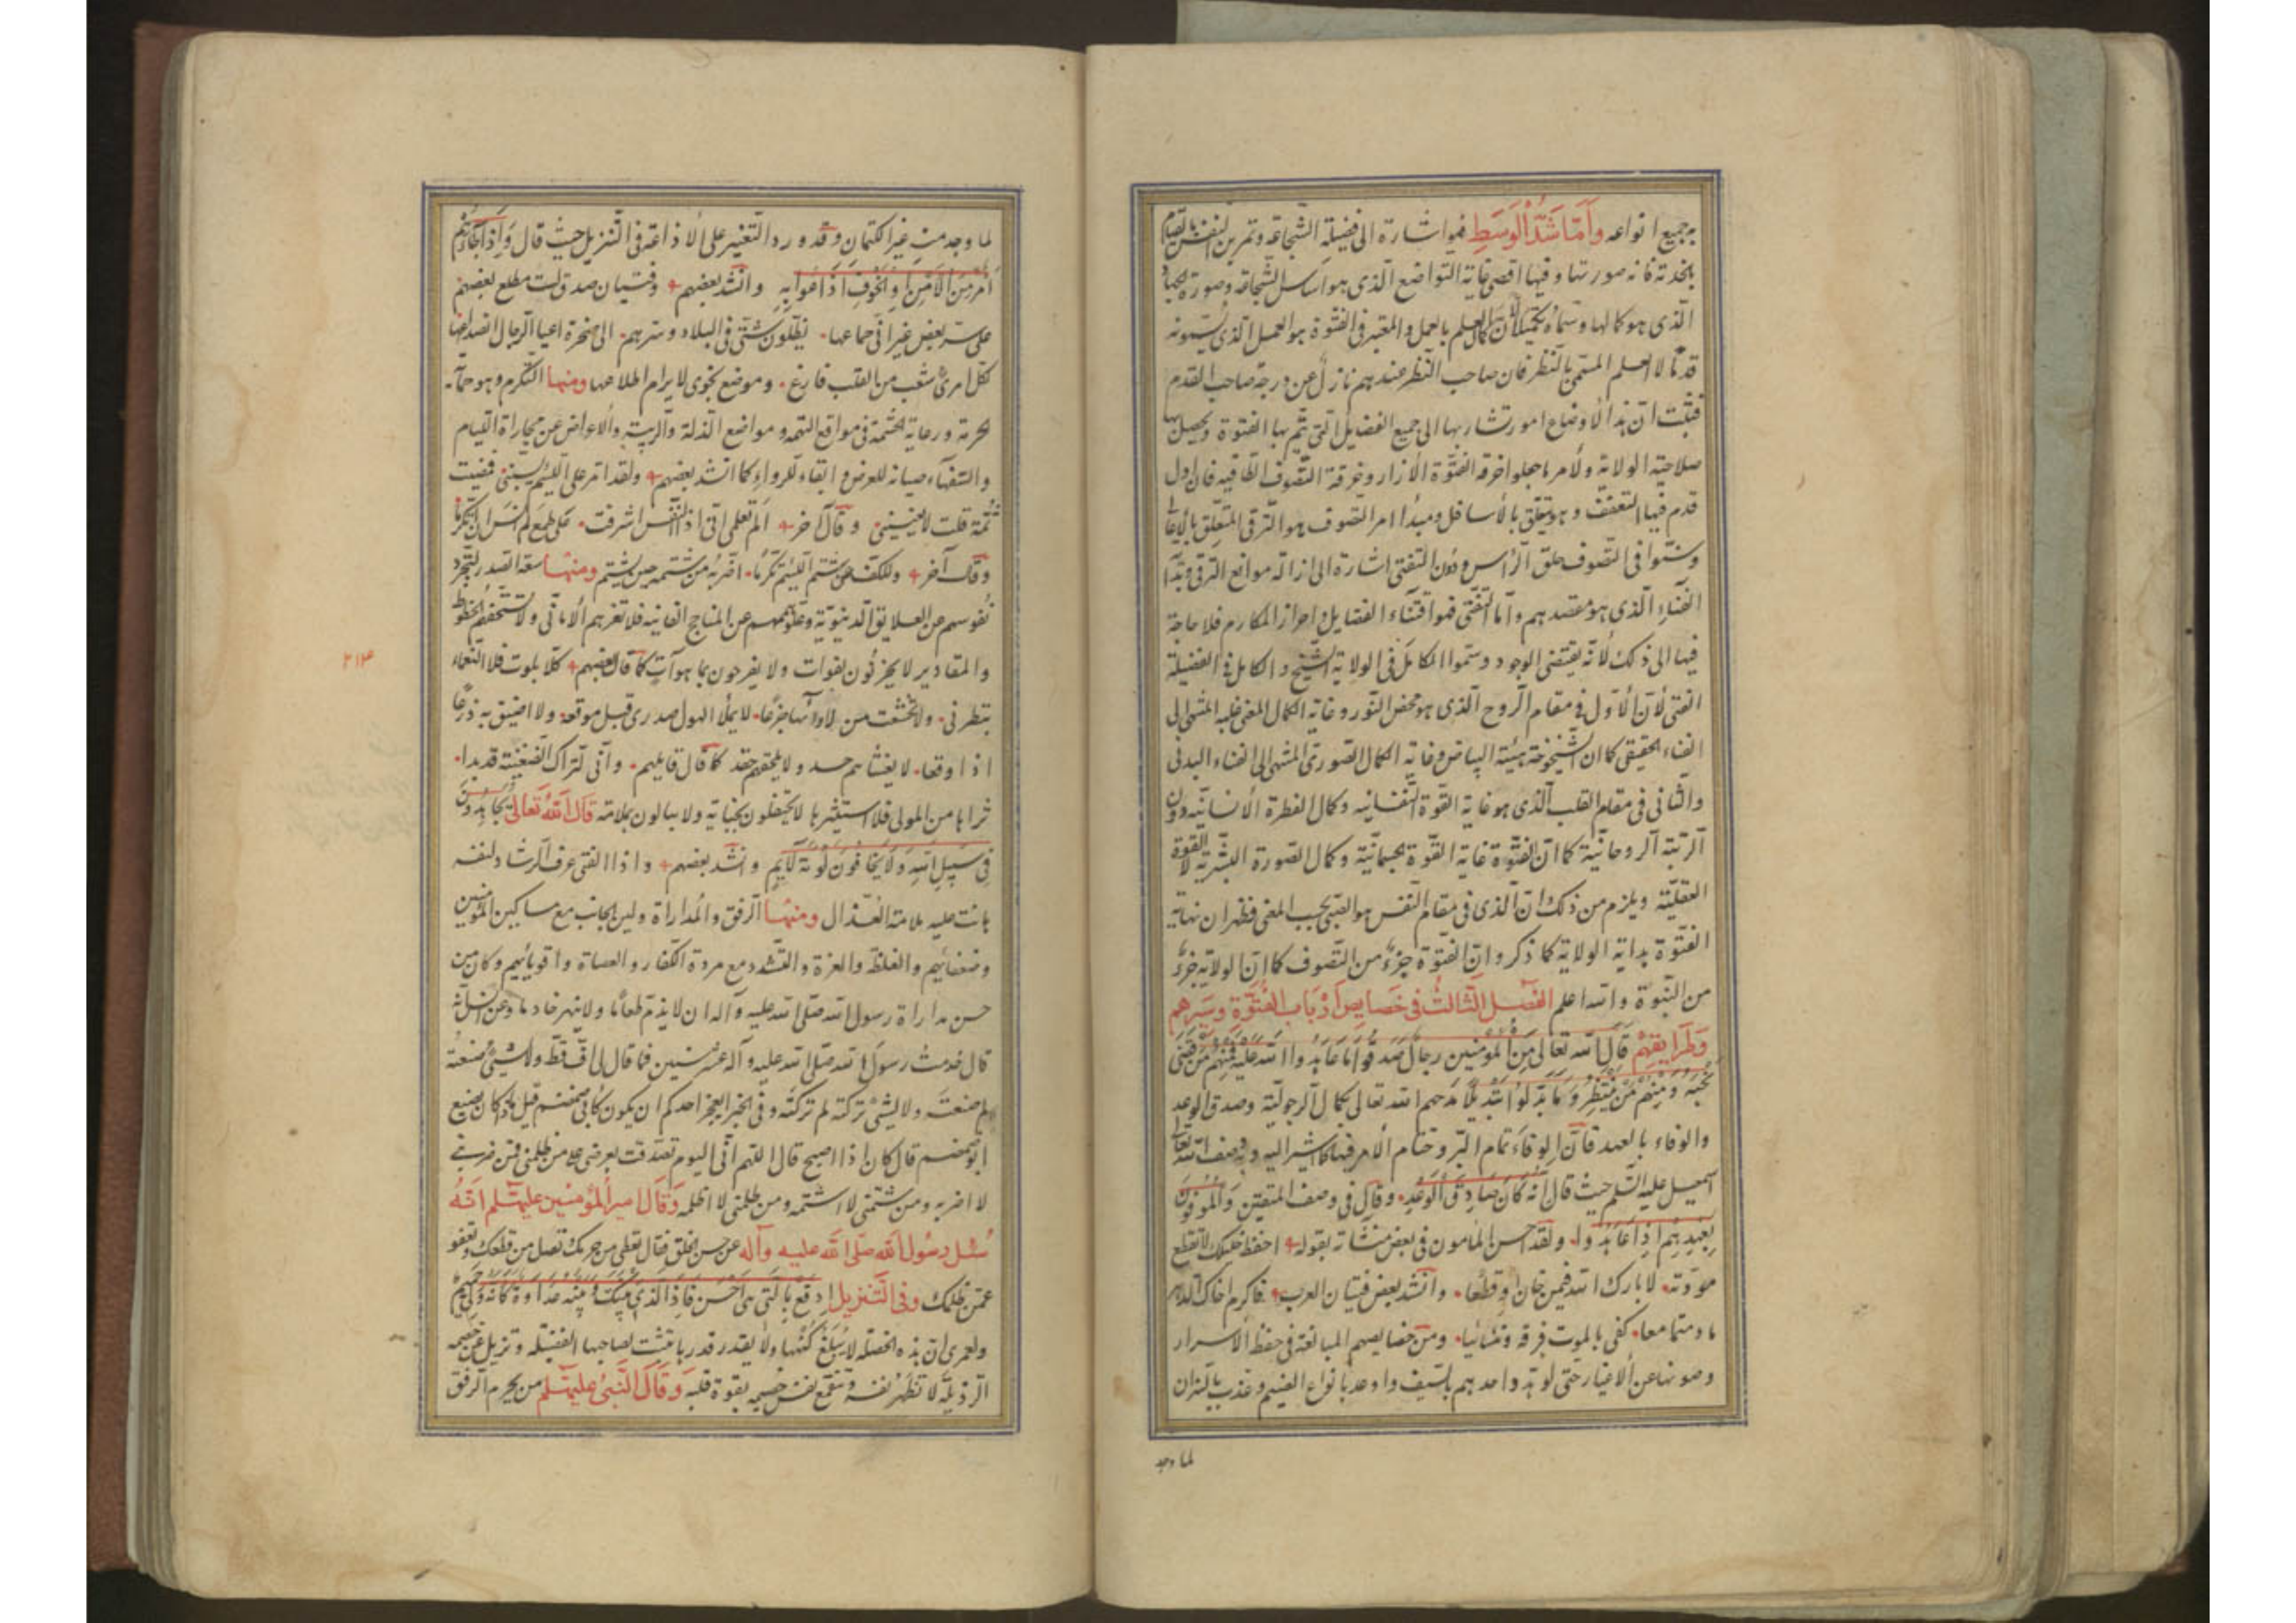 به جميع انواعه وَأَمَّا شَدُّ الْوَسَطِ فهو اشارة الى فضيلة الشجاعة وتمرين النفس بالقيام
بالخدمة فانه صورتها وفيها اقصى غاية التواضع الذى هو اساس الشجاعة وصورة
الذى هو كمالها وسماه تكميلا لان كمال العلم بالعمل والمعتبر فى الفتوة هو العمل الذى يسمونه
قدما لا العلم المسمى بالنظر فان صاحب النظر عندهم نازل عن درجة صاحب القدم
فثبت ان هذه الاوضاع امور تشار بها الى جميع الفضايل التى تتم بها الفتوة ويحصل بها
صلاحية الولاية ولامر ما جعلوا خرقة الفتوة الازار وخرقة التصوف الطاقيه فان اول
قدم فيها التعفف وهو يتعلق بالاسافل ومبدا امر التصوف هو الترقى المتعلق بالاعالى
وسنوا فى التصوف حلق الراس دون التفتى اشارة الى ازالة موانع الترقى وبدا
الفناء الذى هو مقصدهم واما التفتى فهو اقتناء الفضايل واحراز المكارم فلا حاجة
فيها الى ذلك لانه يقتضى الوجود وسموا الكامل فى الولاية الشيخ والكامل فى الفضيلة
الفتى لان الاول فى مقام الروح الذى هو محض النور وغاية الكمال المعنى عليه المنتهى الى
الفناء الحقيقى كما ان الشيخوخة هيئة البياض وغاية الكمال الصورى المنتهى الى الفناء البدنى
والثانى فى مقام القلب الذى هو غاية القوة النفسانيه وكمال الفطرة الانسانيه دون
الرتبة الروحانية كما ان الفتوة غاية القوة الجسمانية وكمال الصورة البشرية لا القوة
العقلية ويلزم من ذلك ان الذى فى مقام النفس هو الصبى بحسب المعنى فظهر ان نهاية
الفتوة بداية الولاية كما ذكر وان الفتوة جزء من التصوف كما ان الولاية جزء
من النبوة والله اعلم الفصل الثالث فى خصايص ارباب الفتوة وسيرهم
وطرايقهم قال الله تعالى من المؤمنين رجال صدقوا ما عاهدوا الله عليه فمنهم من قضى
نحبه ومنهم من ينتظر وما بدلوا تبديلا مدحهم الله تعالى بكمال الرجولية وصدق الوعد
والوفاء بالعهد فان الوفاء تمام البر وختام الامر فيها كما اشير اليه وبه وصف الله تعالى
اسمعيل عليه السلم حيث قال انه كان صادق الوعد وقال فى وصف المتقين والموفون
بعهدهم اذا عاهدوا ولقد احسن المامون فى بعض منشآته بقوله احفظ خليلك لا تقطع
مودته لا بارك الله فيمن خان او قطعا وانشد بعض فتيان العرب فاكرم اخاك الدهر
ما دمتما معا كفى بالموت فرقة وتنائيا ومن خصايصهم المبالغة فى حفظ الاسرار
وصونها عن الاغيار حتى لو هدد احدهم بالسيف واوعد بانواع الضيم وعذب بالنيران
لما وجد
لما وجد منه غير الكتمان وقد ورد التغيير على الاذاعة فى التنزيل حيث قال واذا جاءهم
امر من الامن او الخوف اذاعوا به وانشد بعضهم وفتيان صدق لست مطلع بعضهم
على سر بعض غير انى جماعها يظلون شتى فى البلاد وسرهم الى صخرة اعيا الرجال انصداعها
لكل امرئ شعب من القلب فارغ وموضع نجوى لا يرام اطلاعها ومنها التكرم وهو حماية
الحرمة ورعاية الحشمة فى مواقع التهمة ومواضع الذلة والريبة والاعراض عن مجاراة اللئام
والسفهاء صيانة للعرض وابقاء للرواء كما انشد بعضهم ولقد امر على اللئيم يسبنى فمضيت
ثمة قلت لا يعنينى وقال آخر الم تعلمى انى اذا النفس اشرفت على طمع لم انس ان اتكرما
وقال آخر وللكف عن شتم اللئيم تكرما اضر به من شتمه حين يشتم ومنها سعة الصدر لتجرد
نفوسهم عن العلايق الدنيوية وعلو هممهم عن المناجح الفانيه فلا تغرهم الامانى ولا تستخفهم الحظوظ
والمقادير لا يحزنون بفوات ولا يفرحون بما هو آت كما قال بعضهم كلا بلوت فلا النعماء
تبطرنى ولا تخشعت من لأوائها جزعا لا يملأ الهول صدرى قبل موقعه ولا اضيق به ذرعا
اذا وقعا لا يغشاهم حسد ولا يلحقهم حقد كما قال قايلهم وانى لتراك الضغينة قد بدا
ثراها من المولى فلا استثيرها لا يحتفلون بجناية ولا يبالون بملامة قال الله تعالى يجاهدون
فى سبيل الله ولا يخافون لومة لايم وانشد بعضهم واذا الفتى عرف الرشاد لنفسه
هانت عليه ملامة العذال ومنها الرفق والمداراة ولين الجانب مع مساكين المؤمنين
وضعفائهم والغلظ والعزة والتشدد مع مردة الكفار والعصاة واقويائهم وكان من
حسن مداراة رسول الله صلى الله عليه وآله ان لا يذم طعاما ولا ينهر خادما وعن انس انه
قال خدمت رسول الله صلى الله عليه وآله عشر سنين فما قال لى اف قط ولا لشىء صنعته
لم صنعت ولا لشىء تركته لم تركته وفى الخبر ايعجز احدكم ان يكون كابى ضمضم قيل وما كان يصنع
ابو ضمضم قال كان اذا اصبح قال اللهم انى اليوم تصدقت بعرضى على من ظلمنى فمن ضربنى
لا اضربه ومن شتمنى لا اشتمه ومن ظلمنى لا اظلمه وقال امير المؤمنين عليه السلم انه
سئل رسول الله صلى الله عليه وآله عن حسن الخلق فقال تعطى من حرمك تصل من قطعك وتعفو
عمن ظلمك وفى التنزيل ادفع بالتى هى احسن فاذا الذى بينك وبينه عداوة كانه ولى حميم
ولعمرى ان هذه الخصلة لا يبلغ كنهها ولا يقدر قدرها تثبت لصاحبها الفضيله وتزيل عن خصمه
الرذيله لا تطهر نفسه وتقمع نفس خصمه بقوة قلبه وقال النبى عليه السلم من يحرم الرفق
٢١٤